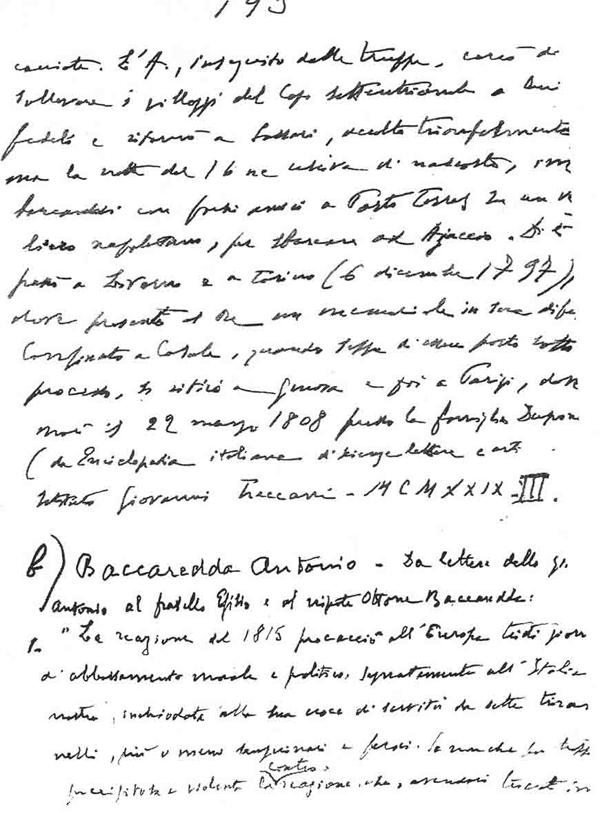 193
L'A., inseguito dalle truppe, cercò di
sollevare i villaggi del Capo settentrionale a lui
fedeli e ritornò a Sassari, accolto trionfalmente
ma la notte del 16 ne usciva di nascosto, im
barcandosi con pochi amici a Porto Torres su un
napoletano, per sbarcare ad Ajaccio. Di là
passò a Livorno e a Torino (6 dicembre 1797),
dove presentò al Re un memoriale in sua difesa.
Confinato a Casale, quando seppe di essere posto sotto
processo, si ritirò a Genova e poi a Parigi, dove
morì il 22 marzo 1808 presso la famiglia
(da Enciclopedia italiana di scienze lettere e arti
Istituto Giovanni Treccani - MCMXXIX - III.
b) Baccaredda Antonio - Da lettere dello
Antonio al fratello Efisio e al nipote Ottone Baccaredda:
1. "La reazione del 1815 procacciò all'Europa tristi giorni
d'abbassamento morale e politico, segnatamente all'Italia
nostra, inchiodata alla sua croce di servitù da sette tiran
nelli, più o meno sanguinari e feroci. Senonché la
precipitata e violenta contro
reazione, che,